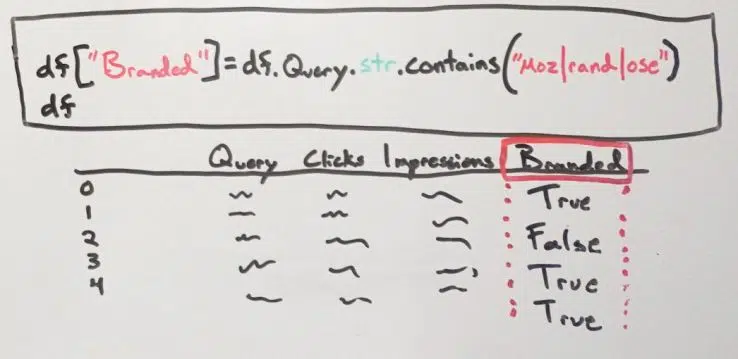 df["Branded"]=df.Query.str.contains("Moz|rand|ose")
df
Query Clicks Impressions Branded
0 True
1 False
2 True
3 True
4